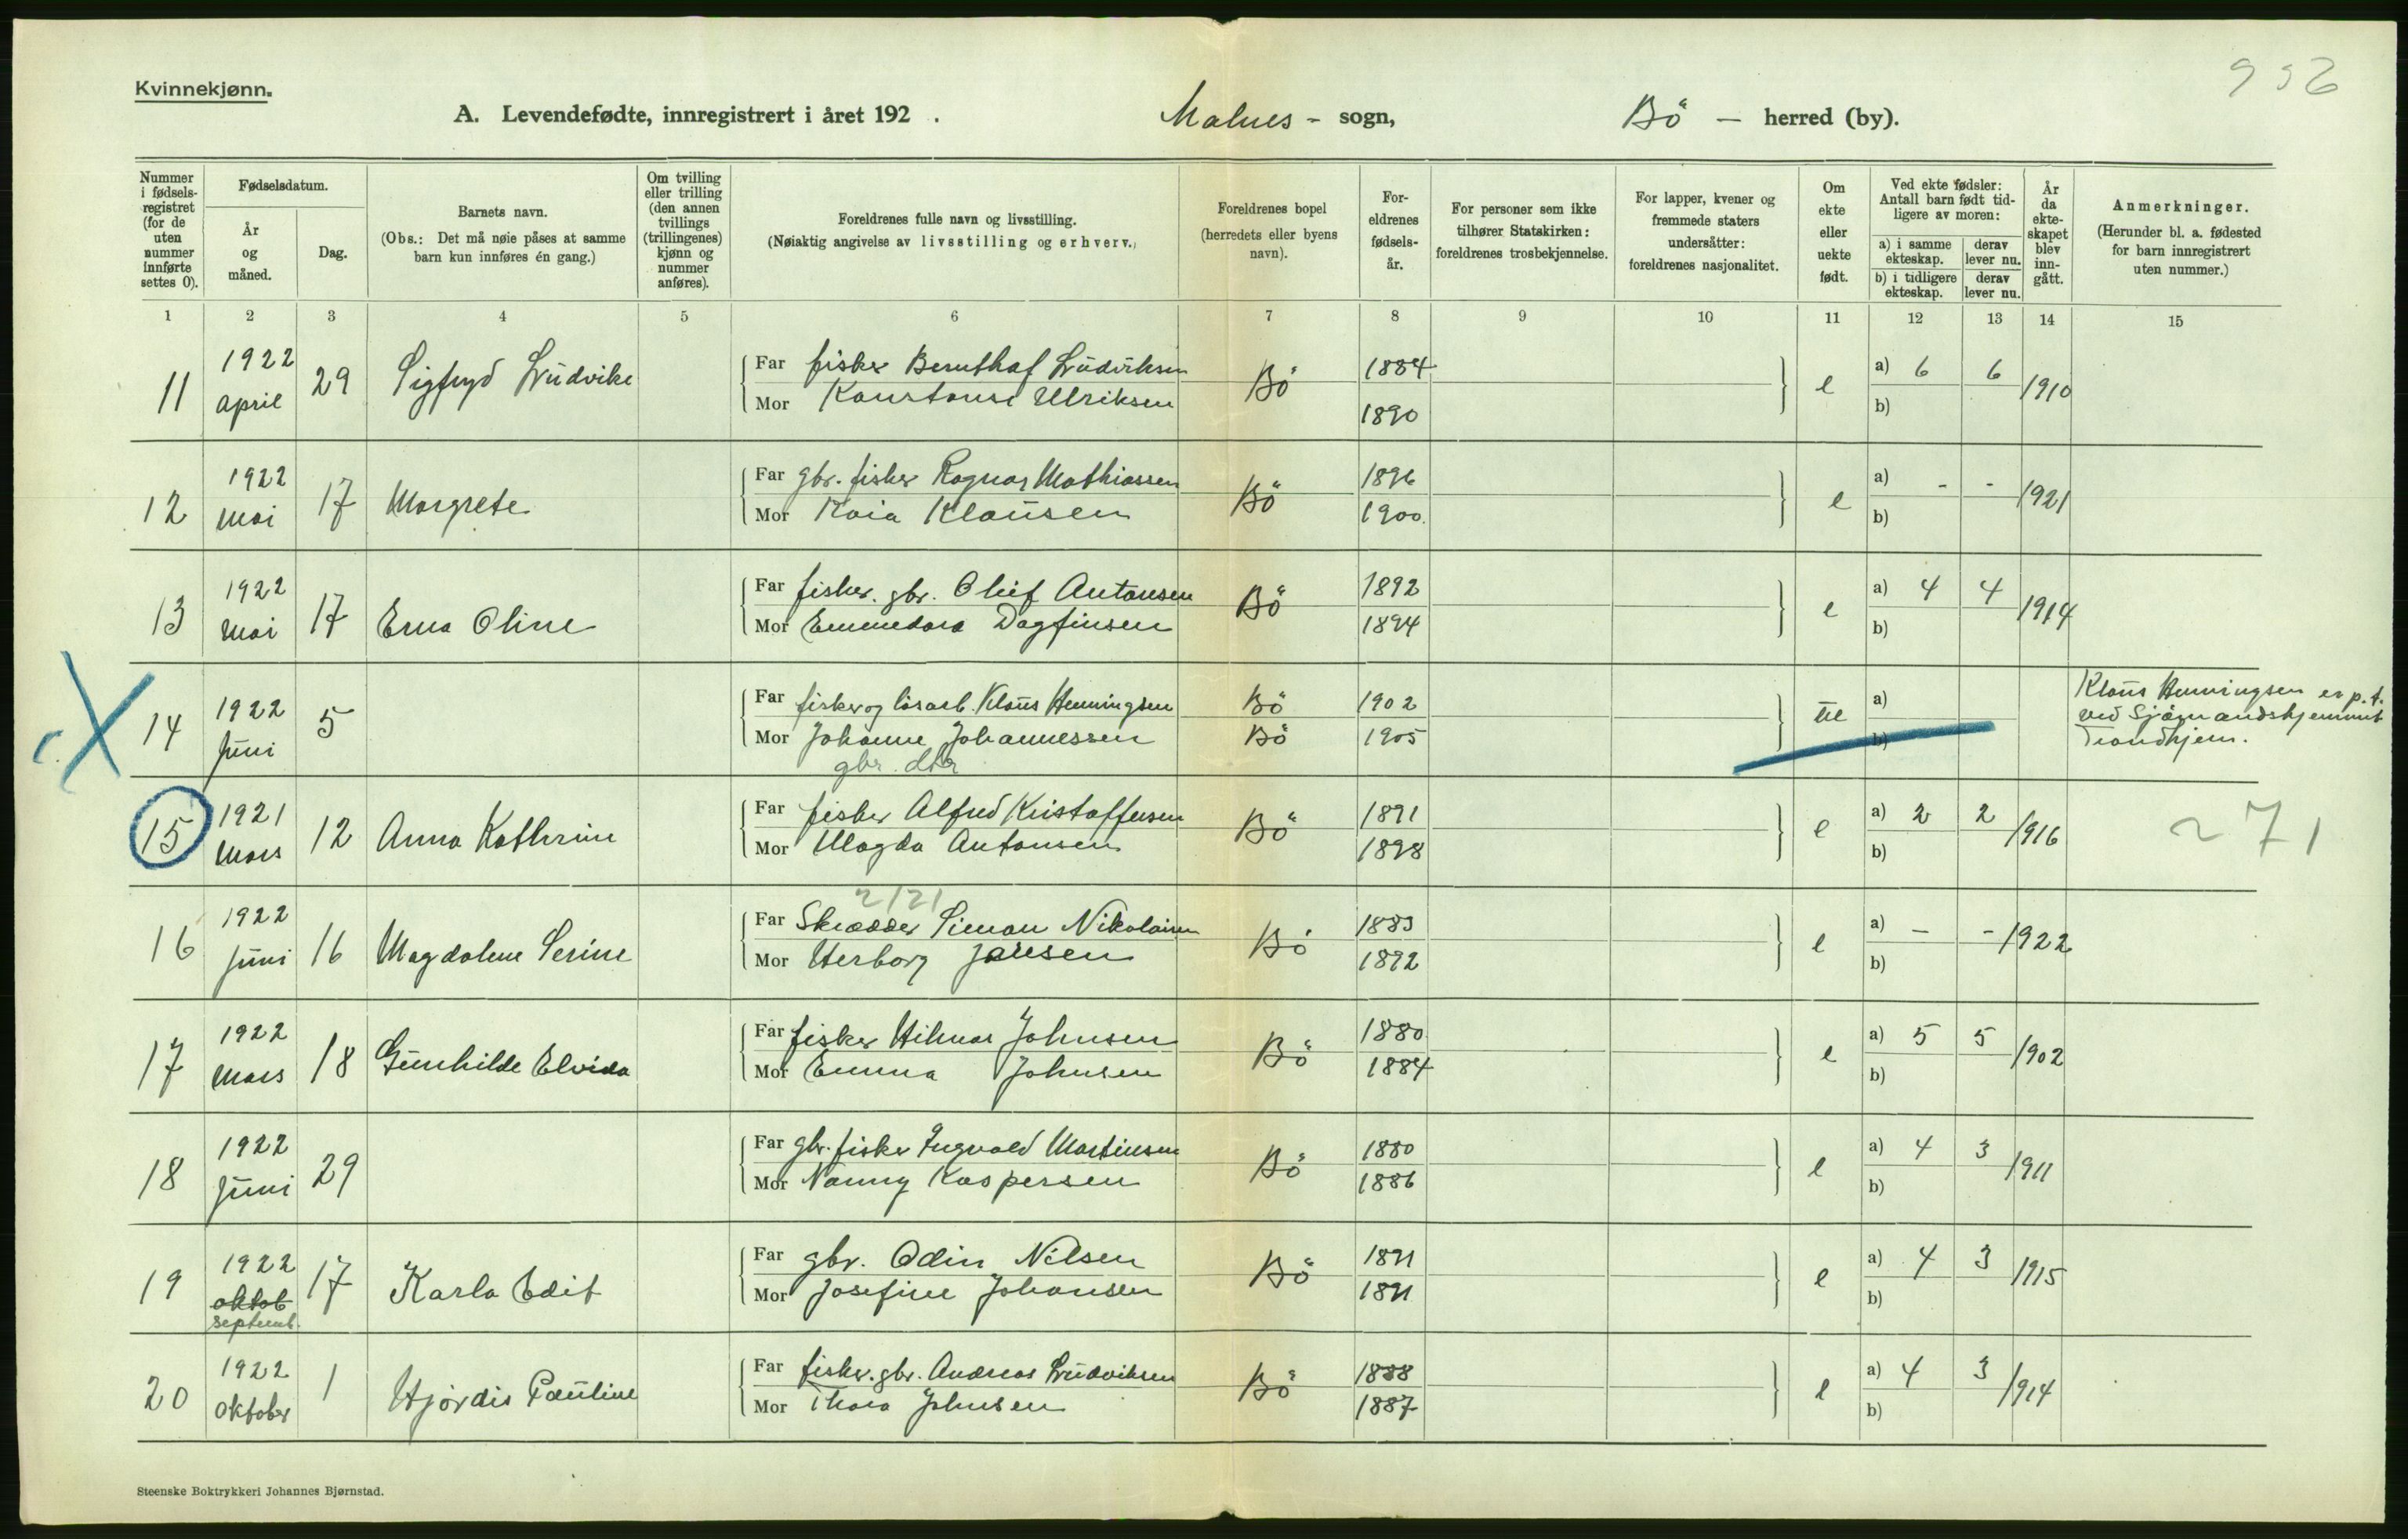 Kvinnekjønn.
956
A. Levendefødte, innregistrert i året 192 . Malnes - sogn, Bö - herred (by).
Nummer i fødsels-registret (for de uten nummer innførte settes 0).
Fødselsdatum.
År og måned.
Dag.
Barnets navn.
(Obs.: Det må nøie påses at samme barn kun innføres én gang.)
Om tvilling eller trilling (den annen tvillings (trillingenes) kjønn og nummer anføres).
Foreldrenes fulle navn og livsstilling.
(Nøiaktig angivelse av livsstilling og erhverv.)
Foreldrenes bopel (herredets eller byens navn).
For-eldrenes fødsels-år.
For personer som ikke tilhører Statskirken: foreldrenes trosbekjennelse.
For lapper, kvener og fremmede staters undersåtter: foreldrenes nasjonalitet.
Om ekte eller uekte født.
Ved ekte fødsler: Antall barn født tid-ligere av moren:
a) i samme ekteskap.
derav lever nu.
b) i tidligere ekteskap.
derav lever nu.
År da ekte-skapet blev inn-gått.
Anmerkninger.
(Herunder bl. a. fødested for barn innregistrert uten nummer.)
1 2 3 4 5 6 7 8 9 10 11 12 13 14 15
11 1922 april 29 Sigfryd Lüdvike
Far fisker Bernthof Lüdviksen Bö 1884 e a) 6 6 1910
Mor Konstanse Ulriksen 1890 b)
12 1922 Mai 17 Margrete
Far gbr. fisker Ragnar Mathiassen Bö 1896 e a) - - 1921
Mor Kaia Klaüsen 1900. b)
13 1922 Mai 17 Erna Oline
Far fisker. gbr. Oluf Antonsen Bö 1892 e a) 4 4 1914
Mor Emmedora Dagfinsen 1894 b)
14 1922 Jüni 5
Far fisker og lösarb. Klaüs Henningsen Bö 1902 üe a)
Mor Johanne Johannessen Bö 1905 b)
gbr. dtr
Klaüs Henningsen er p.t.
ved Sjömandshjemmet
Trondhjem.
15 1921 Mars 12 Anna Kathrine
Far fisker Alfred Kristoffersen Bö 1891 e a) 2 2 1916 271
Mor Magda Antonsen 1898 b)
2/21
16 1922 Jüni 16 Magdalene Serine
Far Skrædder Simon Nikolaisen Bö 1883 e a) - - 1922
Mor Herborg Jansen 1892 b)
17 1922 Mars 18 Günhilde Elvida
Far fisker Hilmar Johnsen Bö 1880 e a) 5 5 1902
Mor Emma Johnsen 1884 b)
18 1922 Jüni 29
Far gbr. fisker Ingvald Martinsen Bö 1880 e a) 4 3 1911
Mor Nanny Kaspersen 1886 b)
19 1922 oktob septemb. 17 Karla Edit
Far gbr. Odin Nilsen Bö 1891 e a) 4 3 1915
Mor Josefine Johansen 1891 b)
20 1922 oktober 1 Hjördis Paüline
Far fisker. gbr. Andreas Lüdviksen Bö 1888 e a) 4 3 1914
Mor Thora Johnsen 1887 b)
Steenske Boktrykkeri Johannes Bjørnstad.